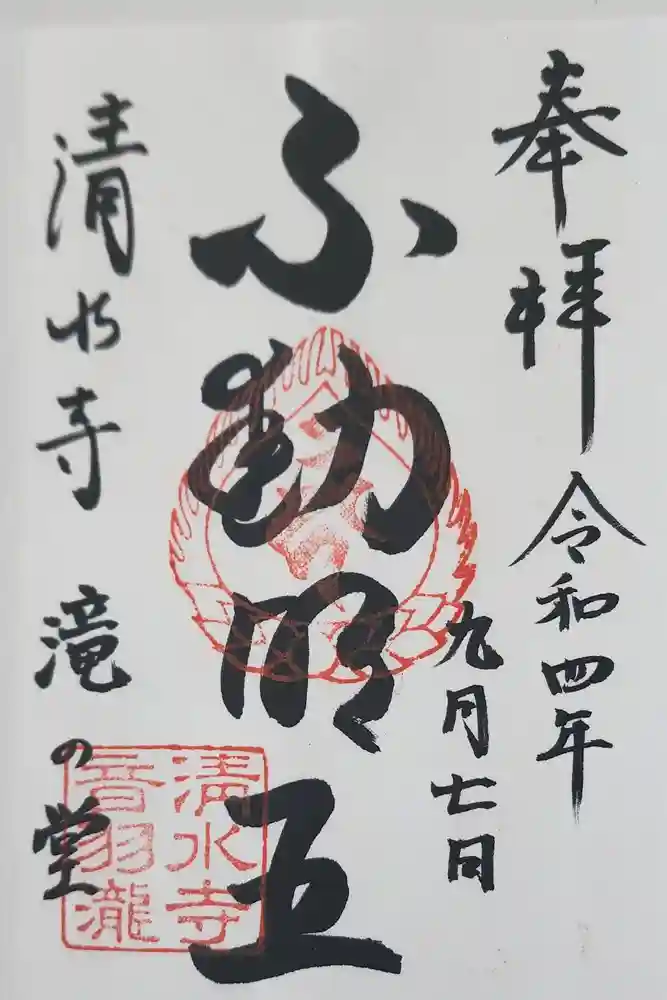 奉拝
令和四年
九月七日
不動明王
清水寺
滝の堂
清水寺
音羽瀧